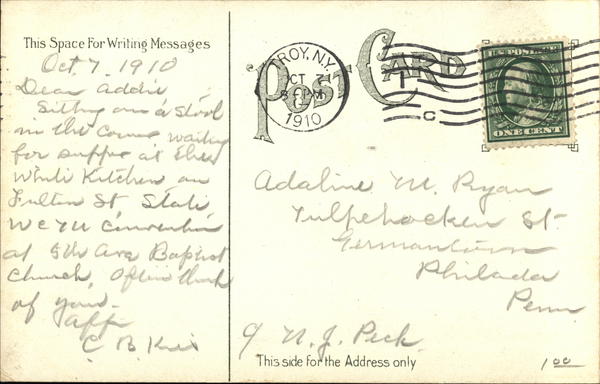 This Space For Writing Messages
Oct. 7. 1910
Dear Addie
Sitting on a stool
in the waiting
for supper at
White Kitchen on
Fulton St. State
W C T U Convention
at 5th Ave Baptist
Church, Often think
of you.
Aff
C. B.
POST CARD
TROY, N.Y.
OCT 7
8-PM
1910
C
U.S. POSTAGE
ONE CENT
Adaline M. Ryan
Tulpehocken St.
Germantown
Philada
Penn
N. J. Peck
This side for the Address only
1.00